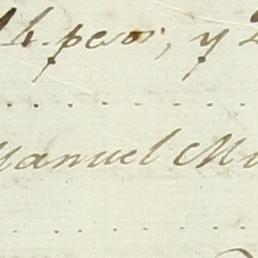 4. pesos, y 2
Manuel M